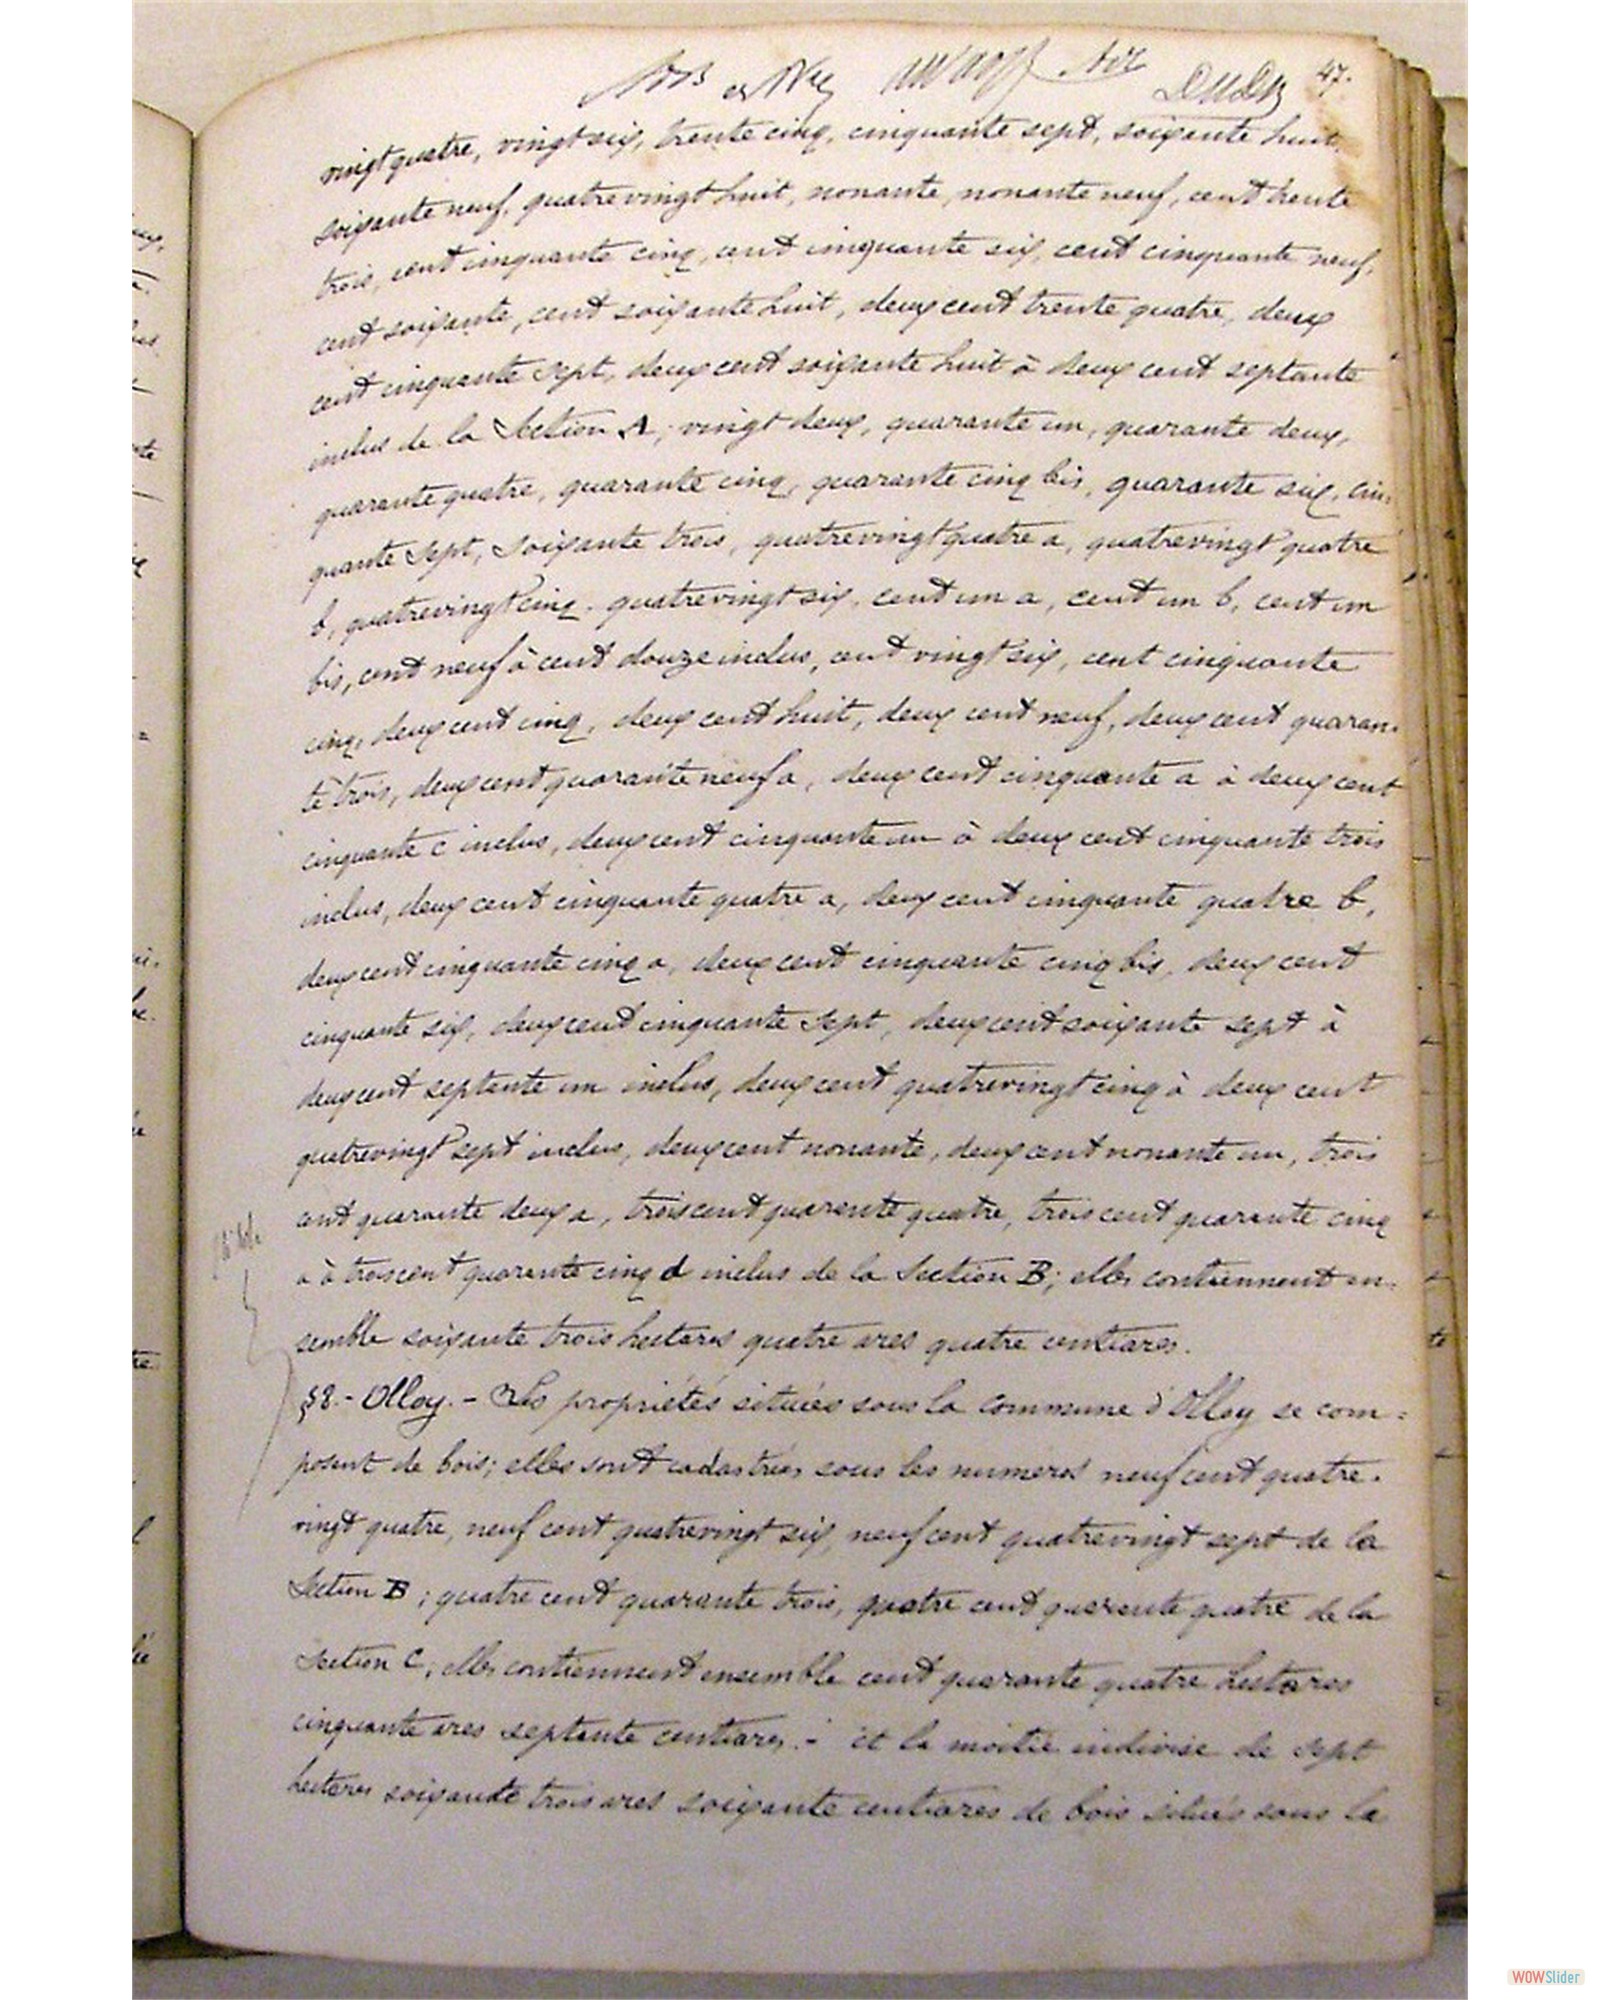 47.
vingt quatre, vingt six, trente cinq, cinquante sept, soixante huit,
soixante neuf, quatre vingt huit, nonante, nonante neuf, cent trente
trois, cent cinquante cinq, cent cinquante six, cent cinquante neuf,
cent soixante, cent soixante huit, deux cent trente quatre, deux
cent cinquante sept, deux cent soixante huit à deux cent septante
inclus de la Section A; vingt deux, quarante un, quarante deux,
quarante quatre, quarante cinq, quarante cinq bis, quarante six, cin-
quante sept, soixante trois, quatrevingt quatre a, quatrevingt quatre
b, quatrevingt cinq, quatrevingt six, cent un a, cent un b, cent un
bis, cent neuf à cent douze inclus, cent vingt six, cent cinquante
cinq, deux cent cinq, deux cent huit, deux cent neuf, deux cent quaran-
te trois, deux cent quarante neuf a, deux cent cinquante a à deux cent
cinquante c inclus, deux cent cinquante un à deux cent cinquante trois
inclus, deux cent cinquante quatre a, deux cent cinquante quatre b,
deux cent cinquante cinq a, deux cent cinquante cinq bis, deux cent
cinquante six, deux cent cinquante sept, deux cent soixante sept à
deux cent septante un inclus, deux cent quatrevingt cinq à deux cent
quatrevingt sept inclus, deux cent nonante, deux cent nonante un, trois
cent quarante deux a, trois cent quarante quatre, trois cent quarante cinq
a à trois cent quarante cinq d inclus de la Section B; elles contiennent en-
semble soixante trois hectares quatre ares quatre centiares.
§8.- Olloy. - Les propriétés situées sous la commune d'Olloy se com=
posent de bois; elles sont cadastrées sous les numéros neuf cent quatre-
vingt quatre, neuf cent quatrevingt six, neuf cent quatrevingt sept de la
Section B; quatre cent quarante trois, quatre cent quarante quatre de la
Section C; elles contiennent ensemble cent quarante quatre hectares
cinquante ares septante centiares.- et la moitié indivise de sept
hectares soixante trois ares soixante centiares de bois situés sous la
WOWSlider